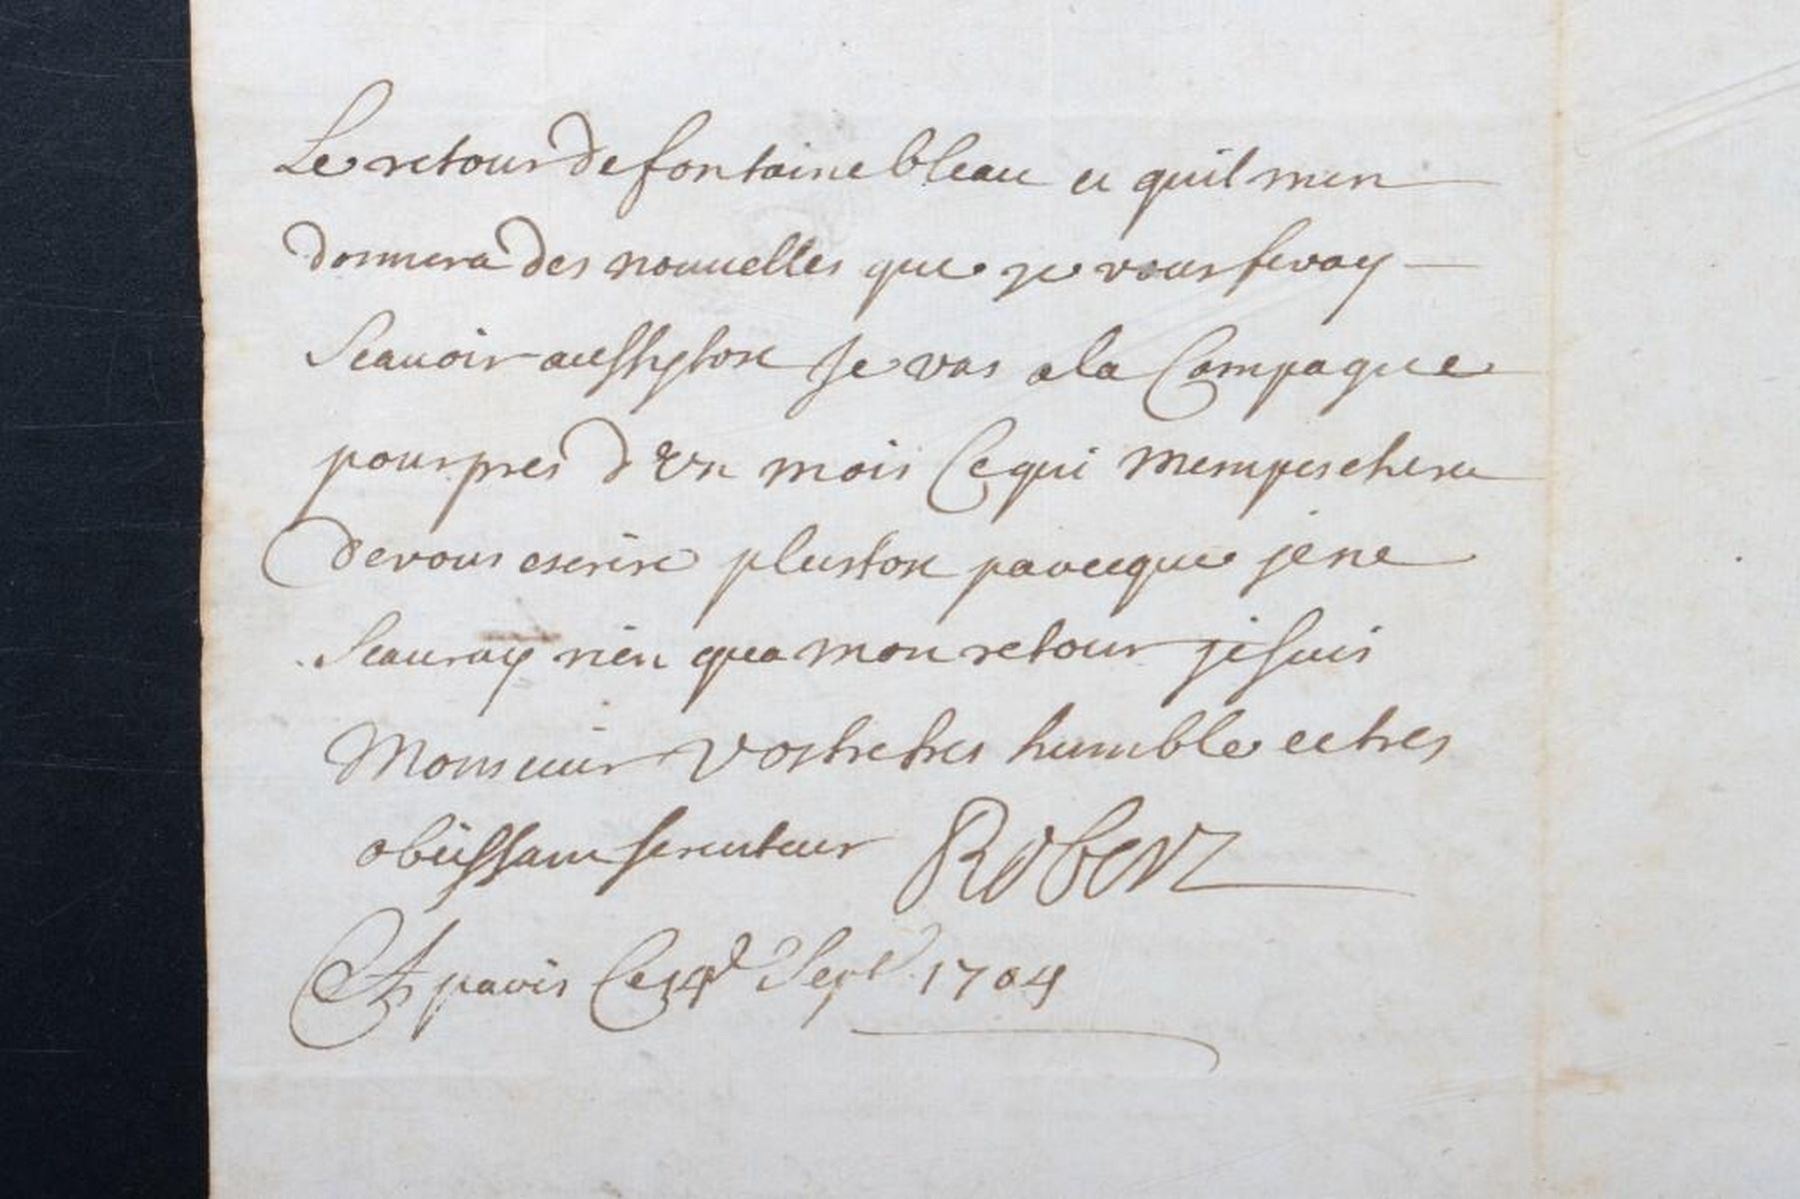 Le retour de fontainebleau et quil men
donnera des nouuelles que je vous feray
Scauoir aussytost Je vas a la Campagne
pour pres d'Un mois Ce qui mempeschera
de vous escrire plustost parceque je ne
Scauray rien qua mon retour je suis
Monsieur Vostre tres humble et tres
obeissant seruiteur Robert
A paris Ce 14e Sept. 1704